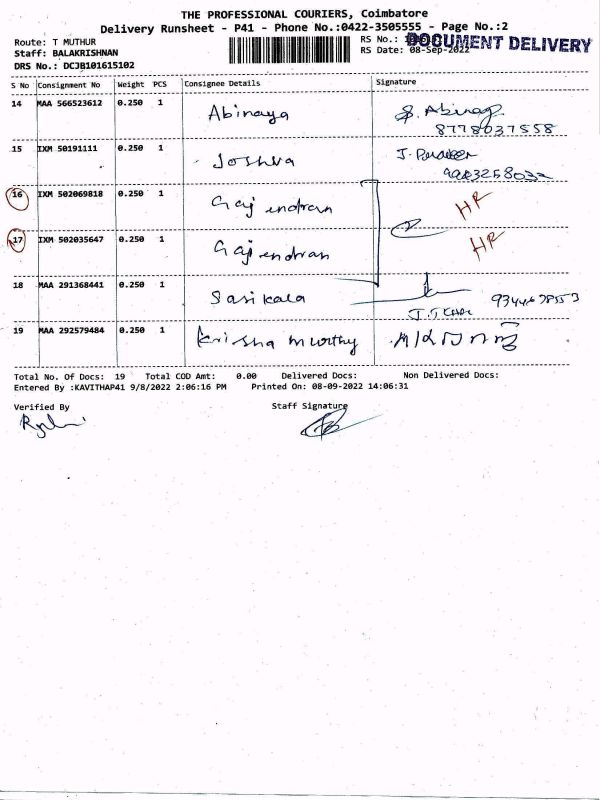 THE PROFESSIONAL COURIERS, Coimbatore
Delivery Runsheet - P41 - Phone No.:0422-3505555 - Page No.:2
Route: T MUTHUR RS No.:
DOCUMENT DELIVERY
Staff: BALAKRISHNAN RS Date: 08-Sep-2022
DRS No.: DCJB101615102
S No Consignment No Weight PCS Consignee Details Signature
14 MAA 566523612 0.250 1 Abinaya
8778037558
15 IXM 50191111 0.250 1 Joshva
16 IXM 502069818 0.250 1 Gajendran HR
17 IXM 502035647 0.250 1 Gajendran HR
18 MAA 291368441 0.250 1 Sasikala
19 MAA 292579484 0.250 1 Krishna murthy
Total No. Of Docs: 19 Total COD Amt: 0.00 Delivered Docs: Non Delivered Docs:
Entered By :KAVITHAP41 9/8/2022 2:06:16 PM Printed On: 08-09-2022 14:06:31
Verified By Staff Signature